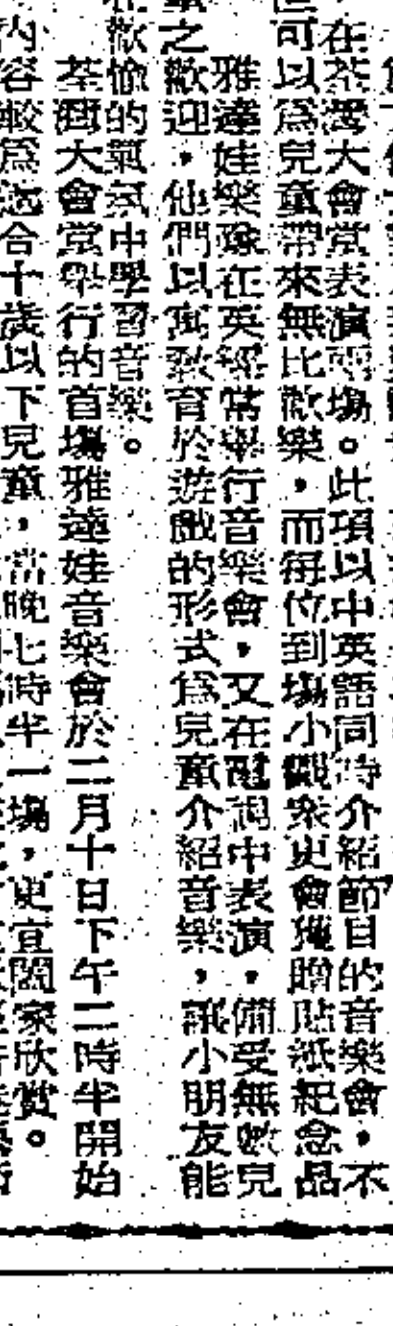 在荃灣大會堂表演兩場。此項以中英語同時介紹節目的音樂會,不
可以爲兒童帶來無比歡樂,而每位到場小觀衆更會獲贈貼紙紀念品
雅達娃樂隊在英經常舉行音樂會,又在電視中表演,備受無數兒
之歡迎,他們以寓教育於遊戲的形式爲兒童介紹音樂,讓小朋友能
歡愉的氣氛中學習音樂。
荃灣大會堂舉行的首場雅達娃音樂會於二月十日下午二時半開始
內容較爲適合十歲以下兒童,當晚七時半一場,更宜闔家欣賞。